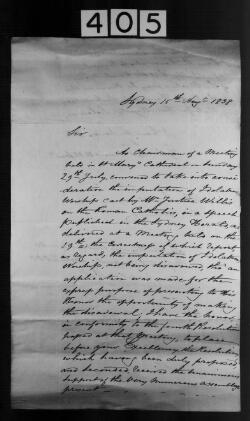 405
Sydney 15th Augt 1838
Sir
As Chairman of a Meeting
held in St Mary's Cathedral on Sunday
29th July, convened to take into consi
deration the imputation of Idolatrous
Worship cast by Mr Justice Willis
on the Roman Catholics, in a speech
published in the Sydney Herald as
delivered at a Meeting held on the
19th the correctness of which report
as regards the imputation of Idolatrous
Worship not being disavowed, tho' an
application was made for the
express purpose of presenting to His
Honor the opportunity of making
the disavowal, I have the honor
in conformity to the fourth Resolution
passed at that Meeting, to place
before your Excellency the Resolutions
which having been duly proposed
and seconded received the unanimous
support of the very numerous assembly
present.